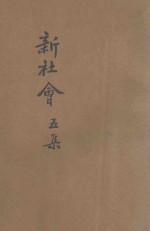 新社會 五集